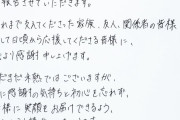 報告させていただきます。
これまで支えてくださった家族、友人、関係者の皆様
して日頃から応援してくださる皆様に、
より感謝申し上げます。
だまだ未熟ではございますが、
に感謝の気持ちと初心を忘れず
様に笑顔をお届けできるよう、